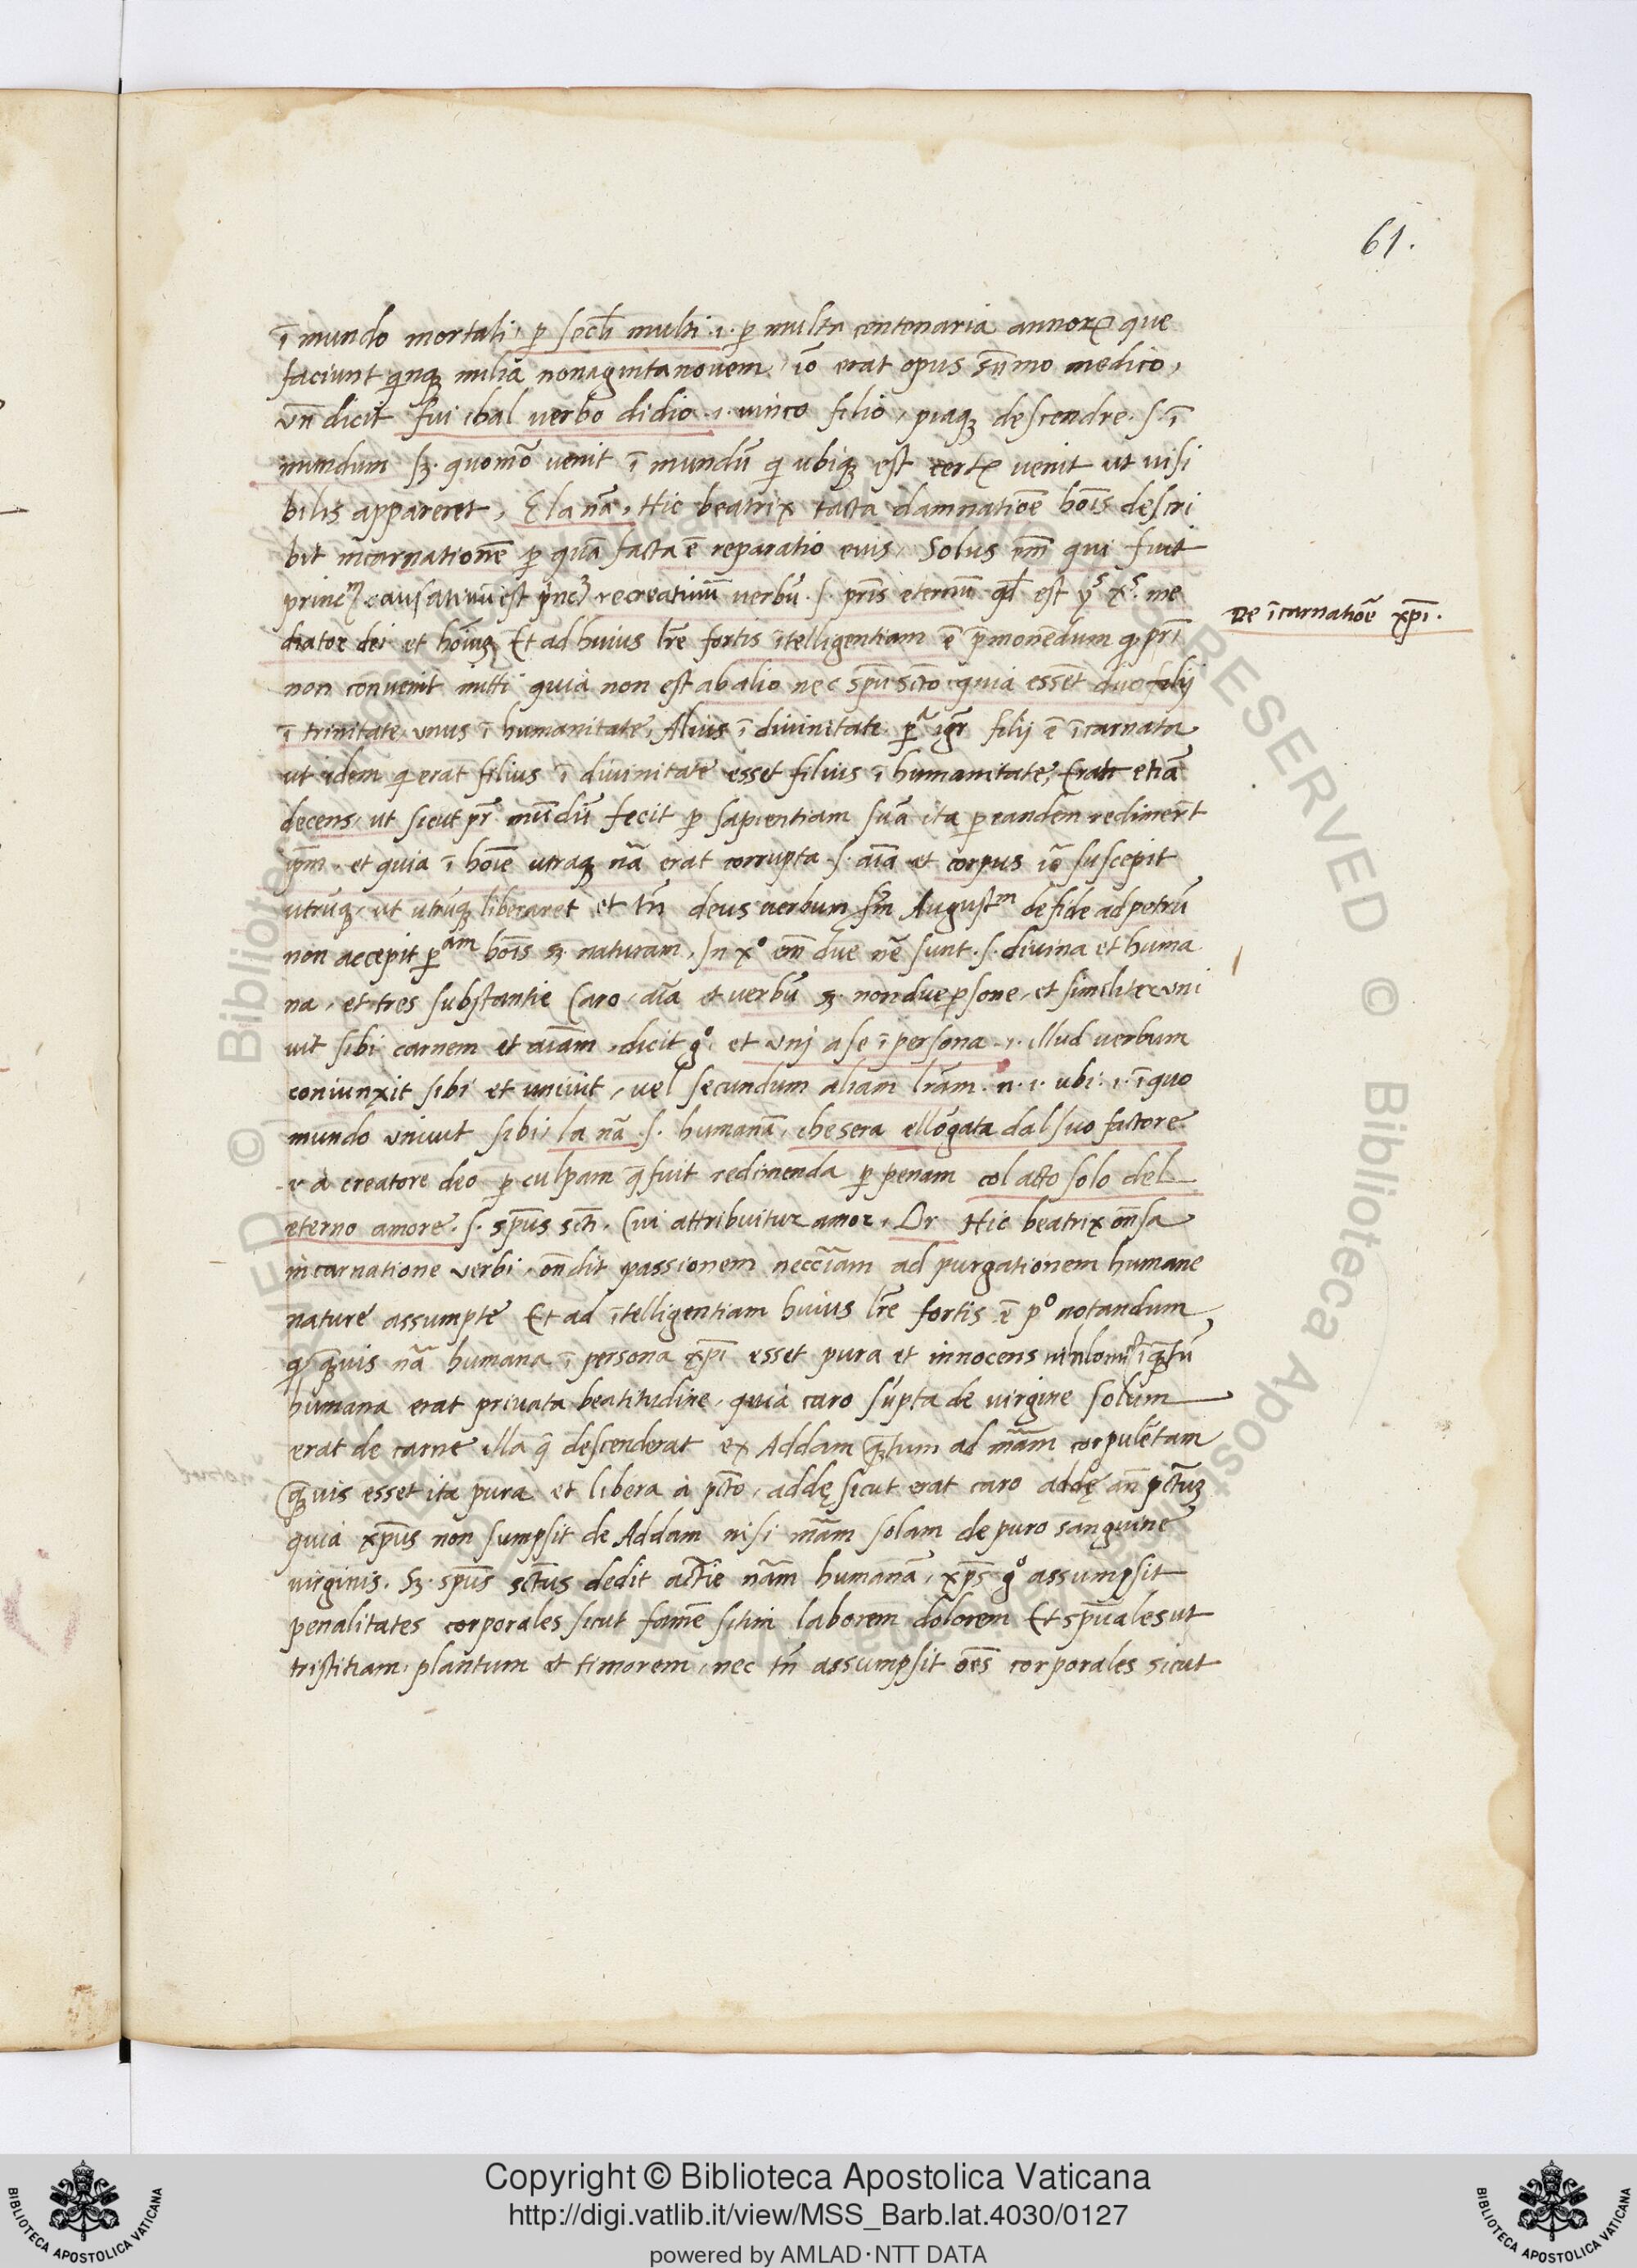 61.
ī mundo mortali, p̱ secli multi .i. p̱ multa centenaria annoꝝ que
faciunt qnqꝫ milia nonagintanovem, iō erat opus sūmo medico,
vn̄ dicit fui ibal verbo didio .i. unico filio, piaqꝫ descendre .s. ī
mundum sꝫ. quomō venit ī mundū qi ubiqꝫ est certe venit ut visi
bilis appareret, E la nā, Hic beatrix tacta damnatiōe hoīs descri
bit incarnationē p̱ quā facta ē reparatio eius, Solus em̄ qui fuit
causativū est recreativū verbū .s. pr̄is eternū qd est yˢ xˢ me
diator dei et hoīuꝫ Et ad huius lr̄e fortis ītelligentiam ē p̄monēdum qꝫ pr̄i
non convenit mitti quia non est ab alio nec spūi sctō quia essēt duo filij
ī trinitate unus ī humanitate, Alius ī divinitate pᵃ igr̄ filij ē īcarnata
ut idem qi erat filius ī divinitate esset filius ī humanitate, Erat etiā
decens, ut sicut pr̄ mūdū fecit p̱ sapientiam suā ita p̱ eandem redimer̄t
ip̄m. et quia ī hoīe utraqꝫ nā erat corrupta .s. aīa et corpus iō suscepit
utrūqꝫ, ut utrūqꝫ liberaret et tn̄ deus verbum sm̄ Augustᵐ de fide ad petrū
non accepit p̱ᵃᵐ hoīs sꝫ. naturam, In xº em̄ due nē sunt .s. divina et huma
na, et tres substantie Caro, aīa et verbū sꝫ. non due p̱sone, et similiter uni
vit sibi carnem et aīam, dicit gº. et unj a se ī persona .i. illud verbum
coniunxit sibi et univit, vel secundum aliam lr̄am .n. i. ubi .i. ī quo
mundo univit sibi, la nā .s. humanā, che sera ellōgata dal suo factore
.i. a creatore deo p̱ culpam q̄ fuit redimenda p̱ penam col acto solo del
eterno amore .s. spūs sctī. Cui attribuitur amor, Or Hic beatrix on̄sa
incarnatione verbi, on̄dit passionem neccīam ad purgationem humane
nature assumpte Et ad ītelligentiam huius lr̄e fortis ē pº notandum
qꝫ qꝫvis nā humana ī persona xp̄i esset pura et innocens īqꝫtū
humana erat privata beatitudine, quia caro sūpta de virgine solum
erat de carne illa q̄ descenderat ex Addam qꝫtum ad mām corpulētam
qꝫvis esset ita pura et libera à pctō, addę sicut erat caro addę an̄ pctūꝫ
quia xp̄us non sumpsit de Addam nisi mām solam de puro sanguine
virginis. Sꝫ. spūs sctūs dedit actīe nām humanā, xp̄s gº assumpsit
penalitates corporales sicut famē sitim laborem dolorem Et spūales ut
tristitiam, plantum et timorem, nec tn̄ assumpsit oēs corporales sicut
De īcarnatiōe xp̄i.
Copyright © Biblioteca Apostolica Vaticana
http://digi.vatlib.it/view/MSS_Barb.lat.4030/0127
powered by AMLAD·NTT DATA
BIBLIOTECA APOSTOLICA VATICANA
BIBLIOTECA APOSTOLICA VATICANA